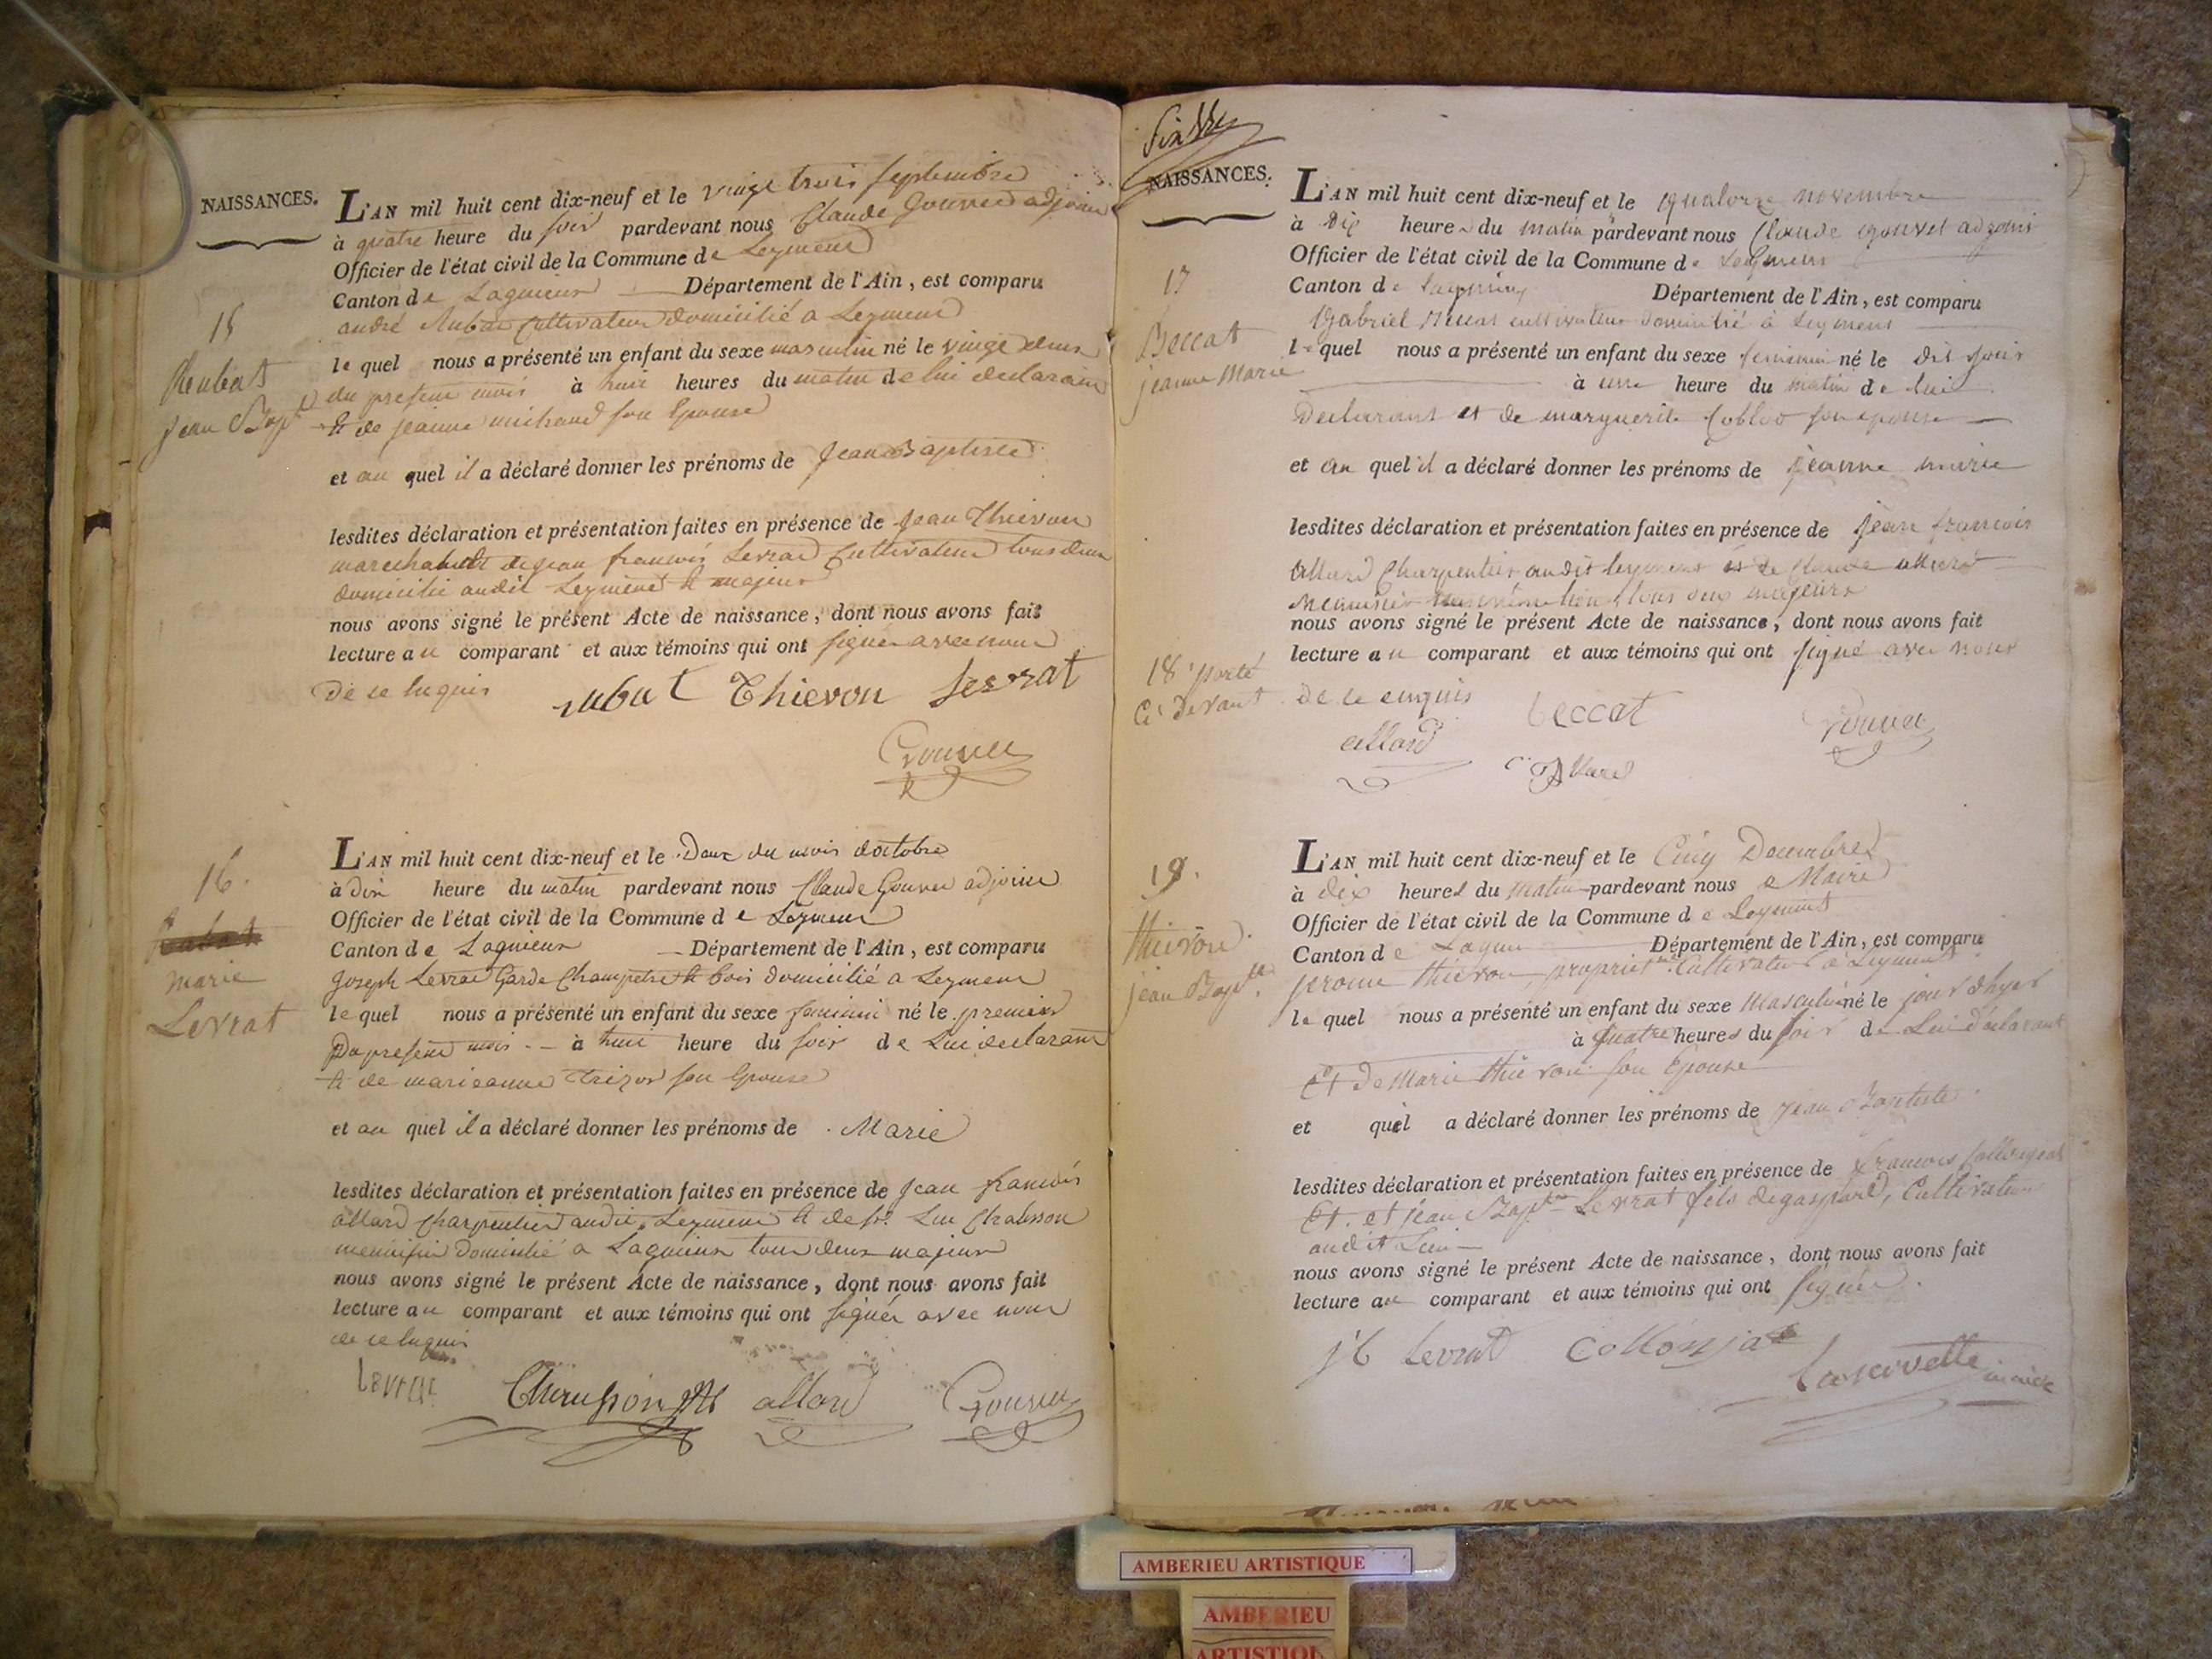 NAISSANCES.
L'AN mil huit cent dix-neuf et le vingt trois septembre
à quatre heure du soir pardevant nous Claude Gouvet adjoint
Officier de l'état civil de la Commune de Leyment
Canton de Lagnieux Département de l'Ain, est comparu
15
andré Aubat Cultivateur domicilié a Leyment
le quel nous a présenté un enfant du sexe masculin né le vingt deux
du present mois à huit heures du matin de lui declarant
jean Bapt
& de jeanne michaud son Epouse
et au quel il a déclaré donner les prénoms de Jean Baptiste
lesdites déclaration et présentation faites en présence de Jean Thievon
françois Levrat Cultivateur tous deux
domicilié audit Leyment & majeur
nous avons signé le présent Acte de naissance, dont nous avons fait
lecture au comparant et aux témoins qui ont signé avec nous
de ce Enquis
Aubat Thievon Levrat
Gouvet
16.
L'AN mil huit cent dix-neuf et le Deux du mois doctobre
à dix heure du matin pardevant nous Claude Gouvet adjoint
Officier de l'état civil de la Commune de Leyment
marie
Levrat
Canton de Lagnieux Département de l'Ain, est comparu
Joseph Levrat Garde Champetre & bois domicilié a Leyment
le quel nous a présenté un enfant du sexe feminin né le premier
Du present mois à huit heure du soir de Lui declarant
& de marieanne son Epouse
et au quel il a déclaré donner les prénoms de Marie
lesdites déclaration et présentation faites en présence de Jean françois
allard Charpentier audit Leyment & de Sr. Luc
menuisier domicilié a Lagnieux tous deux majeur
nous avons signé le présent Acte de naissance, dont nous avons fait
lecture au comparant et aux témoins qui ont signés avec nous
de ce Enquis
Levrat allard Gouvet
NAISSANCES.
L'AN mil huit cent dix-neuf et le quatorze novembre
à Dix heure du matin pardevant nous Claude Gouvet adjoint
Officier de l'état civil de la Commune de Leyment
17
Beccat
jeanne Marie
Canton de Département de l'Ain, est comparu
Gabriel Beccat cultivateur domicilié à Leyment
le quel nous a présenté un enfant du sexe feminin né le dit jour
à une heure du matin de lui
Declarant et de marguerite son epouse
et au quel il a déclaré donner les prénoms de jeanne marie
lesdites déclaration et présentation faites en présence de jean francois
allard Charpentier audit leyment et de Claude allard
menuisier tous deux majeurs
nous avons signé le présent Acte de naissance, dont nous avons fait
lecture au comparant et aux témoins qui ont signé avec nous
18 porté
Ci devant
de ce enquis
allard beccat Gouvet
C. Allard
19.
thievon
jean Bapte.
L'AN mil huit cent dix-neuf et le Cinq Decembre
à dix heures du matin pardevant nous Maire
Officier de l'état civil de la Commune de Leyment
Canton de Département de l'Ain, est comparu
jerome thievon, proprietre Cultivateur à Leyment
le quel nous a présenté un enfant du sexe Masculin né le jour dhyer
à quatre heures du soir de Lui déclarant
Et De Marie thievon son Epouse
et quel a déclaré donner les prénoms de jean Baptiste
lesdites déclaration et présentation faites en présence de francois
Et. et jean Bapte Levrat fils de gaspard, Cultivateur
audit Lieu
nous avons signé le présent Acte de naissance, dont nous avons fait
lecture au comparant et aux témoins qui ont signés
jb Levrat Collonjat
maire
AMBERIEU ARTISTIQUE
AMBERIEU
ARTISTIQUE